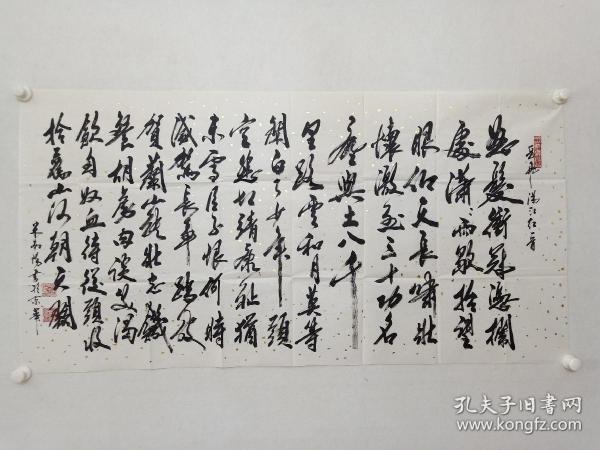 岳飞满江红一首
怒发冲冠凭栏
处潇潇雨歇抬望
眼仰天长啸壮
怀激烈三十功名
尘与土八千
里路云和月莫等
闲白了少年头
空悲切靖康耻犹
未雪臣子恨何时
灭驾长车踏破
贺兰山缺壮志饥
餐胡虏肉笑谈渴
饮匈奴血待从头收
拾旧山河朝天阙
书于京华
孔夫子旧书网
www.kongfz.com